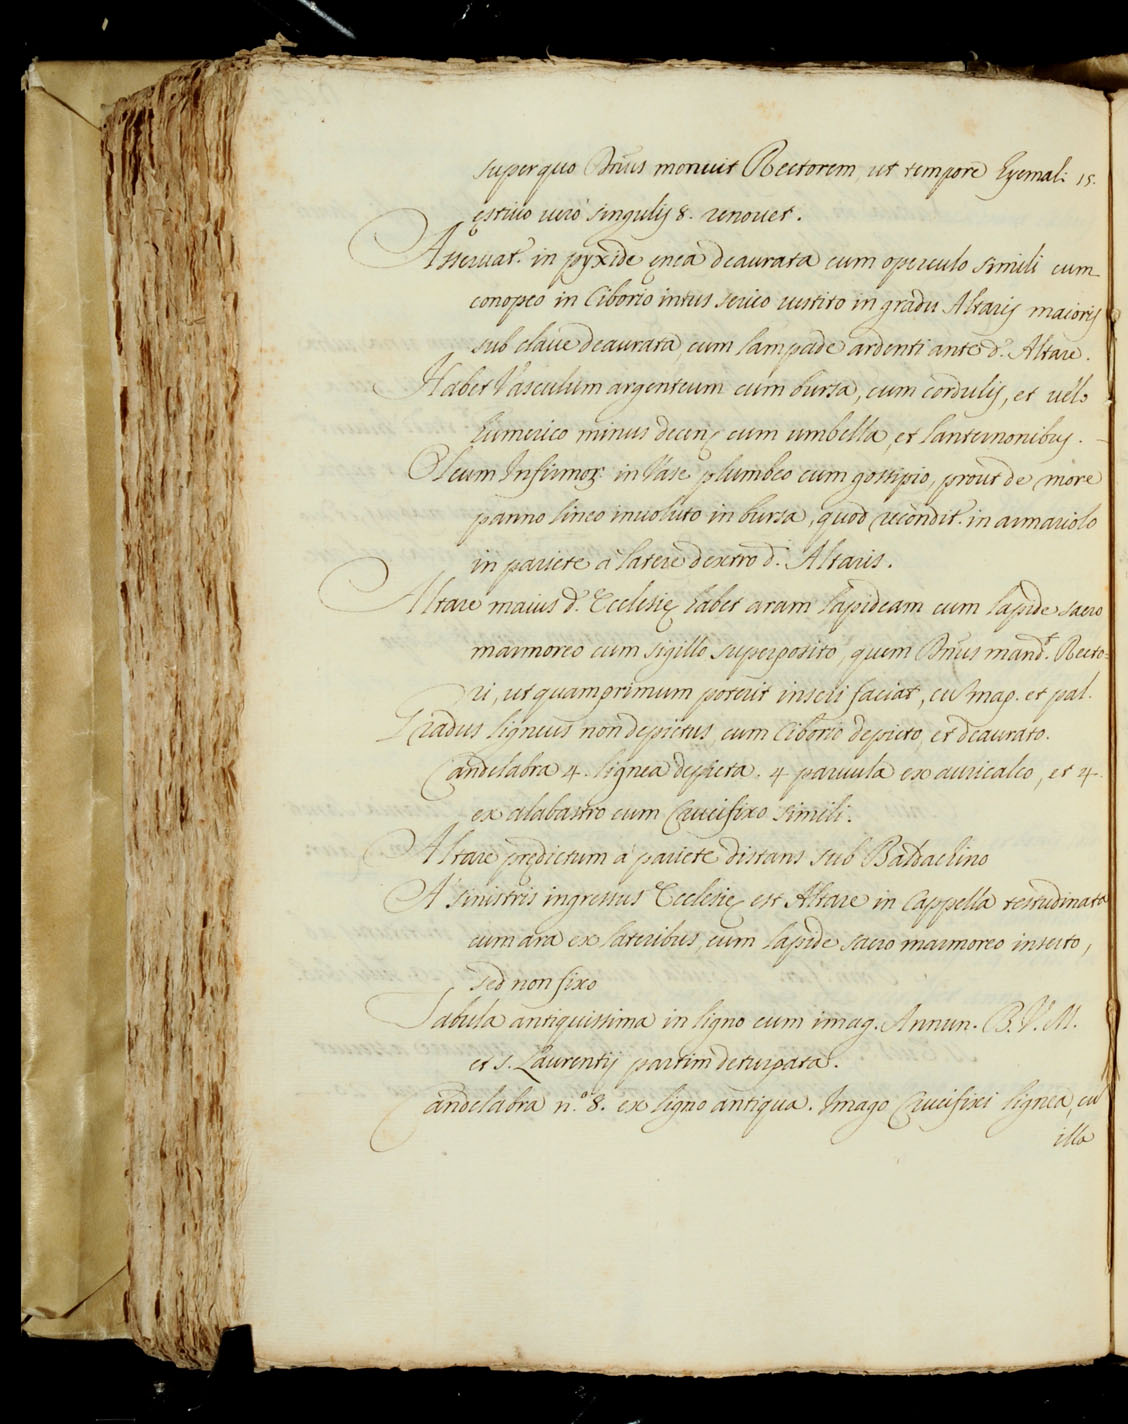 super quo Dñus monuit Rectorem, ut tempore Hyemal: 15.
ęstivo verò singulis 8. renovet.
Asservat. in pyxide ęnea deaurata cum operculo simili cum
conopeo in Ciborio intus serico vestito in gradu Altaris maioris
sub clave deaurata, cum lampade ardenti ante d.m Altare.
Habet Vasculum argenteum cum bursa, cum cordulis, et velo
humerico minus decens cum umbella, et lanternonibus.
Oleum Infirmor: in Vase plumbeo cum gossipio, prout de more
panno lineo involuto in bursa, quod recondit. in armariolo
in pariete à latere dextro d. Altaris.
Altare maius d. Ecclesię habet aram lapideam cum lapide sacro
marmoreo cum sigillo superposito, quem Dñus mand.t Recto=
ri, ut quamprimum poterit inseri faciat, cũ map. et pal.
Gradus ligneus non depictus, cum Ciborio depicto, et deaurato.
Candelabra 4. lignea depicta. 4 parvula ex auricalco, et 4.
ex alabastro cum Crucifixo simili.
Altare prędictum à pariete distans sub Baldachino
A' sinistris ingressus Ecclesię est Altare in Cappella testudinata
cum ara ex lateribus, cum lapide sacro marmoreo inserto,
sed non fixo
Tabula antiquissima in ligno cum imag. Annun. B. V. M.
et S. Laurentij partim deturpata.
Candelabra n.o 8. ex ligno antiqua. Imago Crucifixi lignea, cũ
illa